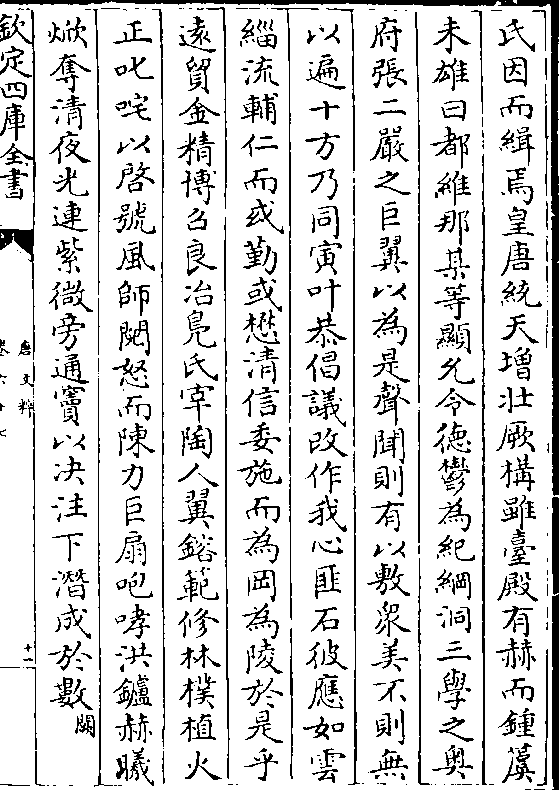 氏因而緝焉皇唐統天增壯厥構雖臺殿有赫而鍾簴
未雄曰都維那某等顯允令德鬱為紀綱洞三學之奥
府張二嚴之巨翼以為是聲聞則有以敷衆美不則無
以遍十方乃同寅叶恭倡議改作我心匪石彼應如雲
緇流輔仁而或勤或懋清信委施而為岡為陵於是乎
遠貿金精博召良冶鳧氏宰陶人翼鎔範修林樸植火
正叱咤以啓號風師閼怒而陳力巨扇咆哮洪鑪赫曦
焮奪清夜光連紫微旁通竇以决注下潛成於數闕
欽定四庫全書
唐文粹
卷六十七
十一